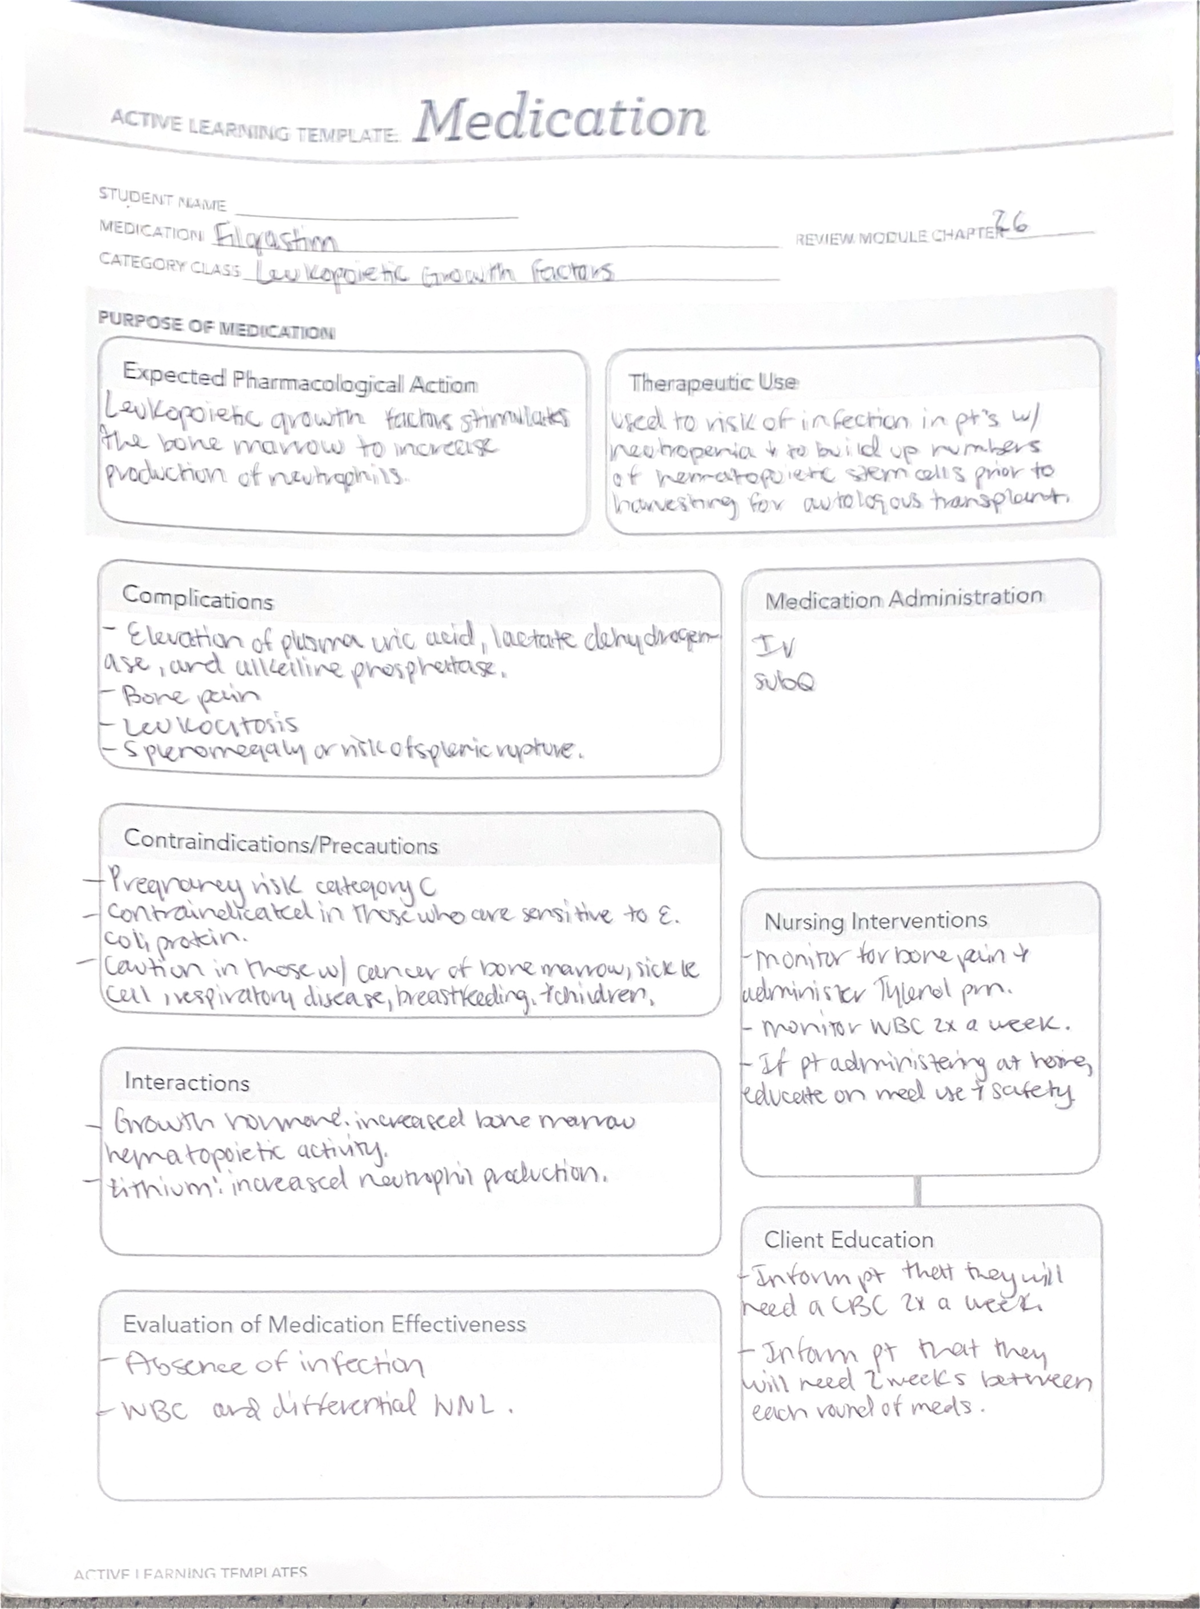 ACTIVE LEARNING TEMPLATE: Medication
STUDENT NAME
MEDICATION Filgrastim
REVIEW MODULE CHAPTER 26
CATEGORY CLASS Leukopoietic Growth Factors
PURPOSE OF MEDICATION
Expected Pharmacological Action
Leukopoietic growth factors stimulates
the bone marrow to increase
production of neutrophils.
Therapeutic Use
used to risk of infection in pt's w/
neutropenia + to build up numbers
of hematopoietic stem cells prior to
harvesting for autologous transplant.
Complications
- Elevation of plasma uric acid, lactate dehydrogen-
ase, and alkeiline phosphertase.
- Bone pain
- Leukocitosis
- Splenomegaly or risk of splenic rupture.
Medication Administration
IV
subQ
Contraindications/Precautions
- Pregnancy risk category C
- Contraindicated in those who are sensitive to E.
coli protein.
- Caution in those w/ cancer of bone marrow, sickle
cell, respiratory disease, breastfeeding, + children.
Nursing Interventions
- Monitor for bone pain +
administer Tylenol prn.
- monitor WBC 2x a week.
- If pt administering at home,
educate on med use + safety.
Interactions
- Growth hormone: increased bone marrow
hematopoietic activity.
- Lithium: increased neutrophil production.
Client Education
- Inform pt that they will
need a CBC 2x a week.
- Inform pt that they
will need 2 weeks between
each round of meds.
Evaluation of Medication Effectiveness
- Absence of infection
- WBC and differential WNL.
ACTIVE LEARNING TEMPLATES